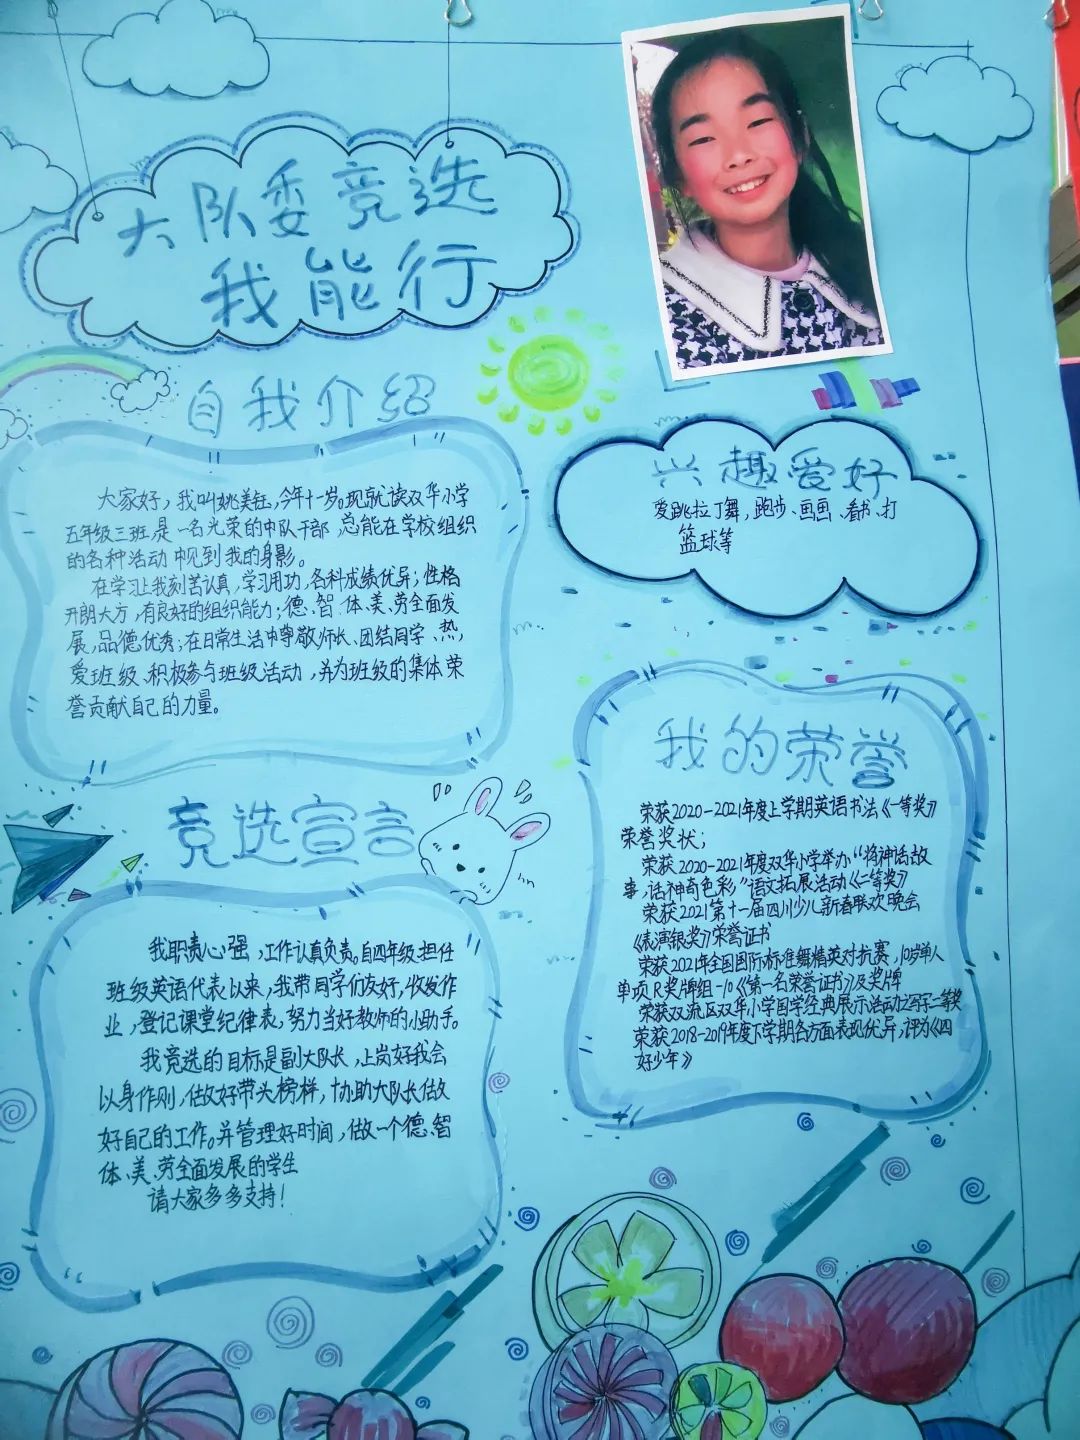 大队委竞选
我能行
自我介绍
大家好，我叫姚美钰，今年十一岁。现就读双华小学
五年级三班，是一名光荣的中队干部，总能在学校组织
的各种活动中见到我的身影。
在学习上我刻苦认真，学习用功，各科成绩优异；性格
开朗大方，有良好的组织能力；德、智、体、美、劳全面发
展，品德优秀；在日常生活中尊敬师长、团结同学、热
爱班级、积极参与班级活动，并为班级的集体荣
誉贡献自己的力量。
兴趣爱好
爱跳拉丁舞，跑步、画画、看书、打
篮球等
我的荣誉
荣获2020-2021年度上学期英语书法《一等奖》
荣誉奖状；
荣获2020-2021年度双华小学举办“将神话故
事，话神奇色彩”语文拓展活动《二等奖》
荣获2021第十一届四川少儿新春联欢晚会
《表演银奖》荣誉证书
荣获2021年全国国际标准舞精英对抗赛，10岁单人
单项R奖牌组-10《第一名荣誉证书》及奖牌
荣获双流区双华小学国学经典展示活动比写字二等奖
荣获2018-2019年度下学期各方面表现优异，评为《四
好少年》
竞选宣言
我职责心强，工作认真负责。自四年级担任
班级英语代表以来，我带同学们友好，收发作
业，登记课堂纪律表，努力当好教师的小助手。
我竞选的目标是副大队长，上岗好我会
以身作则，做好带头榜样，协助大队长做
好自己的工作。并管理好时间，做一个德、智
体、美、劳全面发展的学生
请大家多多支持！